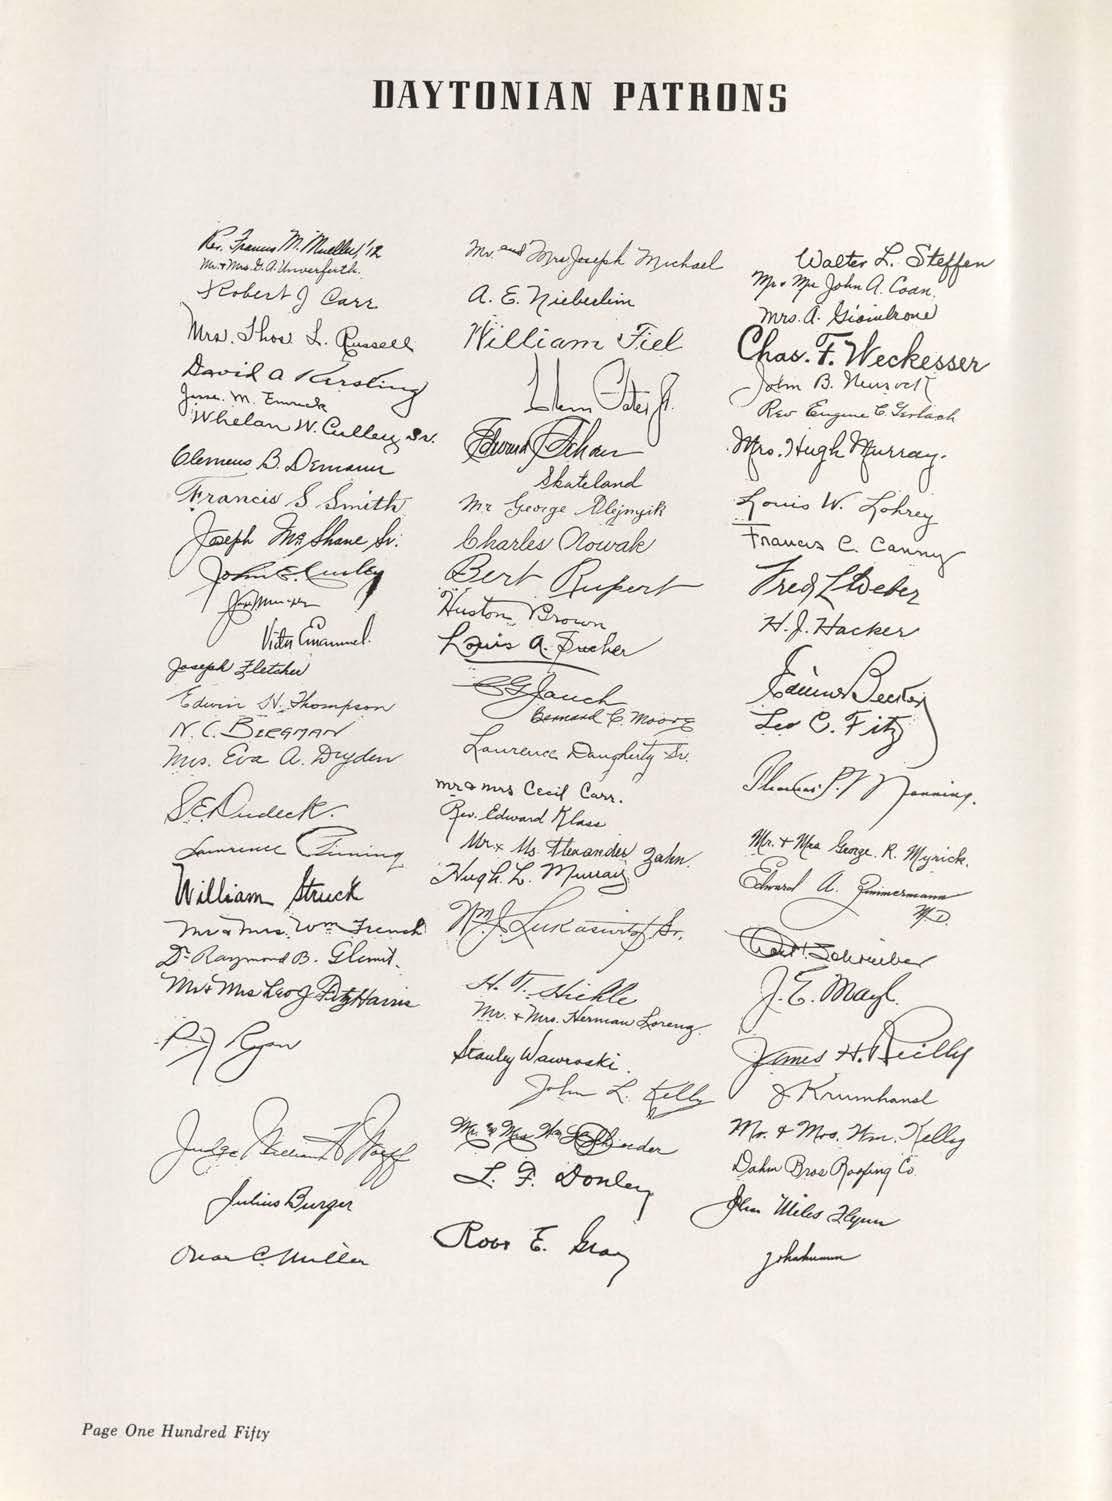 DAYTONIAN PATRONS
Rev. Francis M. Mueller, '12
Mr. & Mrs. G. A. Unverferth.
Robert J Carr
Mrs. Thos L. Russell
David A Kersting
M. Emrick
Whelan W. Culley, Sr.
Clemens B. Demann
Francis S Smith
Joseph McShane Sr.
John E. Curley
Victor Emanuel.
Joseph Fletcher
Edwin H. Thompson
N. C. BERGMAN
Mrs. Eva A. Dryden
S E Dudeck.
Lawrence
William Struck
Mr & Mrs. Wm French
Dr Raymond B.
Mr & Mrs Leo J FitzHarris
P J Ryan
Judge William H Wolff
Julius Burger
Oscar C. Miller
Mr. and Mrs Joseph Michael
A. E. Nieberlein
William Fiel
Edward J Schau
Skateland
Mr George
Charles Nowak
Bert Rupert
Huston Brown
Louis A.
Jauch
Bernard C. Moore
Laurence Daugherty Sr.
Mr & Mrs Cecil Carr.
Rev. Edward Klass
Mr & Ms. Alexander Zahn.
Hugh L. Murray
Wm. J. Sr.
H. T. Hickle
Mr. & Mrs. Herman Lorenz
Stanley Wawroski.
John L. Kelly
Mr & Mrs Wm
L. F. Donley
E. Gray
Walter L. Steffen
Mr & Mrs John A. Coan.
Mrs. A. Giambrone
Chas. F. Weckesser
John B.
Rev Eugene C. Gerlach
Mrs. Hugh Murray.
Louis W. Lohrey
Francis C. Canny
Fred L Weber
H. J. Hacker
Becker
Leo C. Fitz
Thomas P. Manning.
Mr. + Mrs George. R. Myrick.
Edward A. Zimmermann
M.D.
Schreiber
J. E. Mayl.
James H. Reilly
J Krumhansl
Mr. & Mrs. Wm. Kelly
Dahm Bros Roofing Co.
John Miles Flynn
Page One Hundred Fifty